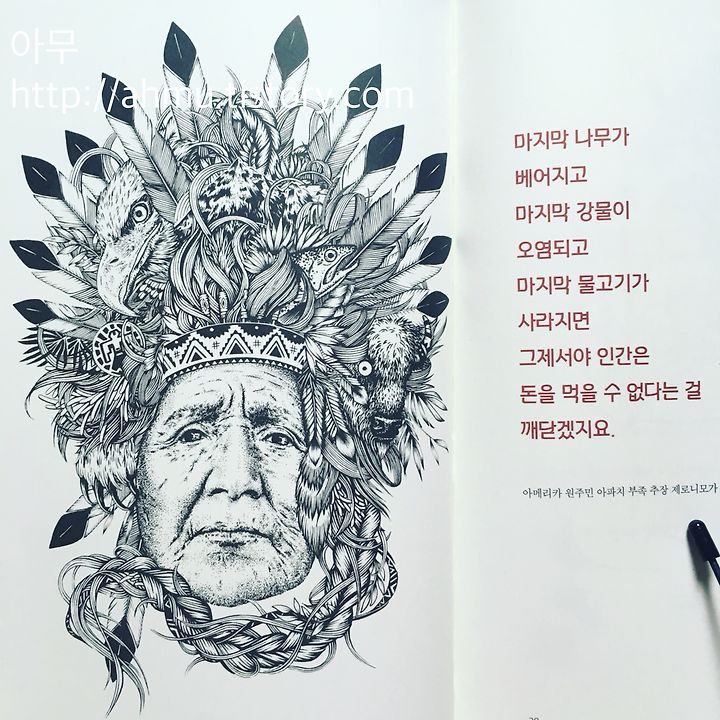 아무
http://ahmu.tistory.com
마지막 나무가
베어지고
마지막 강물이
오염되고
마지막 물고기가
사라지면
그제서야 인간은
돈을 먹을 수 없다는 걸
깨닫겠지요.
아메리카 원주민 아파치 부족 추장 제로니모가